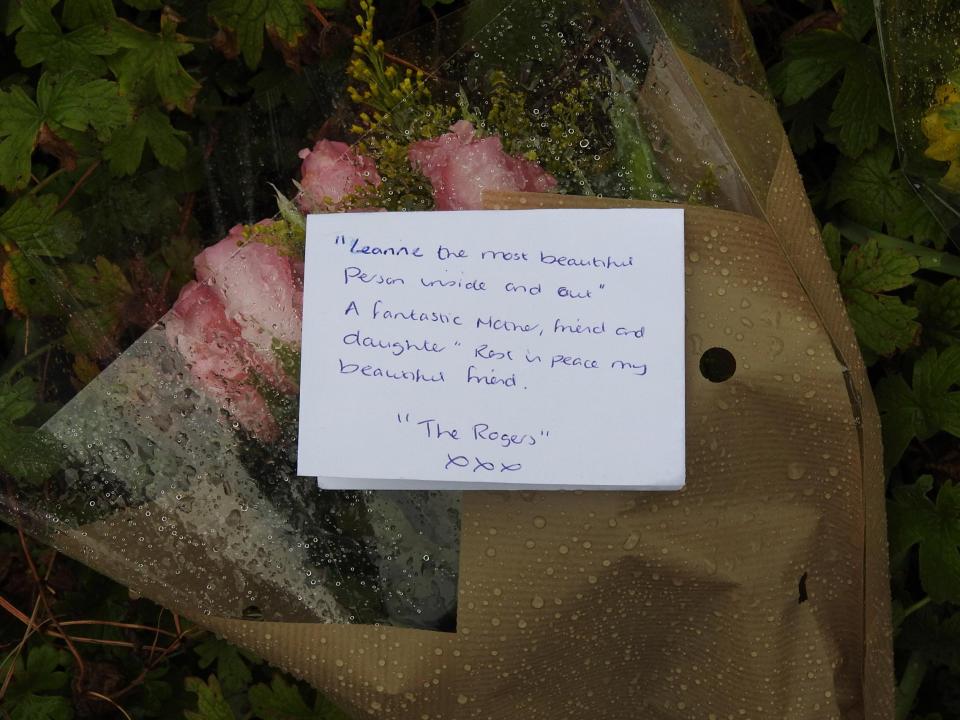 "Leanne the most beautiful
Person inside and out"
A fantastic Mother, friend and
daughter" Rest in peace my
beautiful friend.
"The Rogers"
xxx